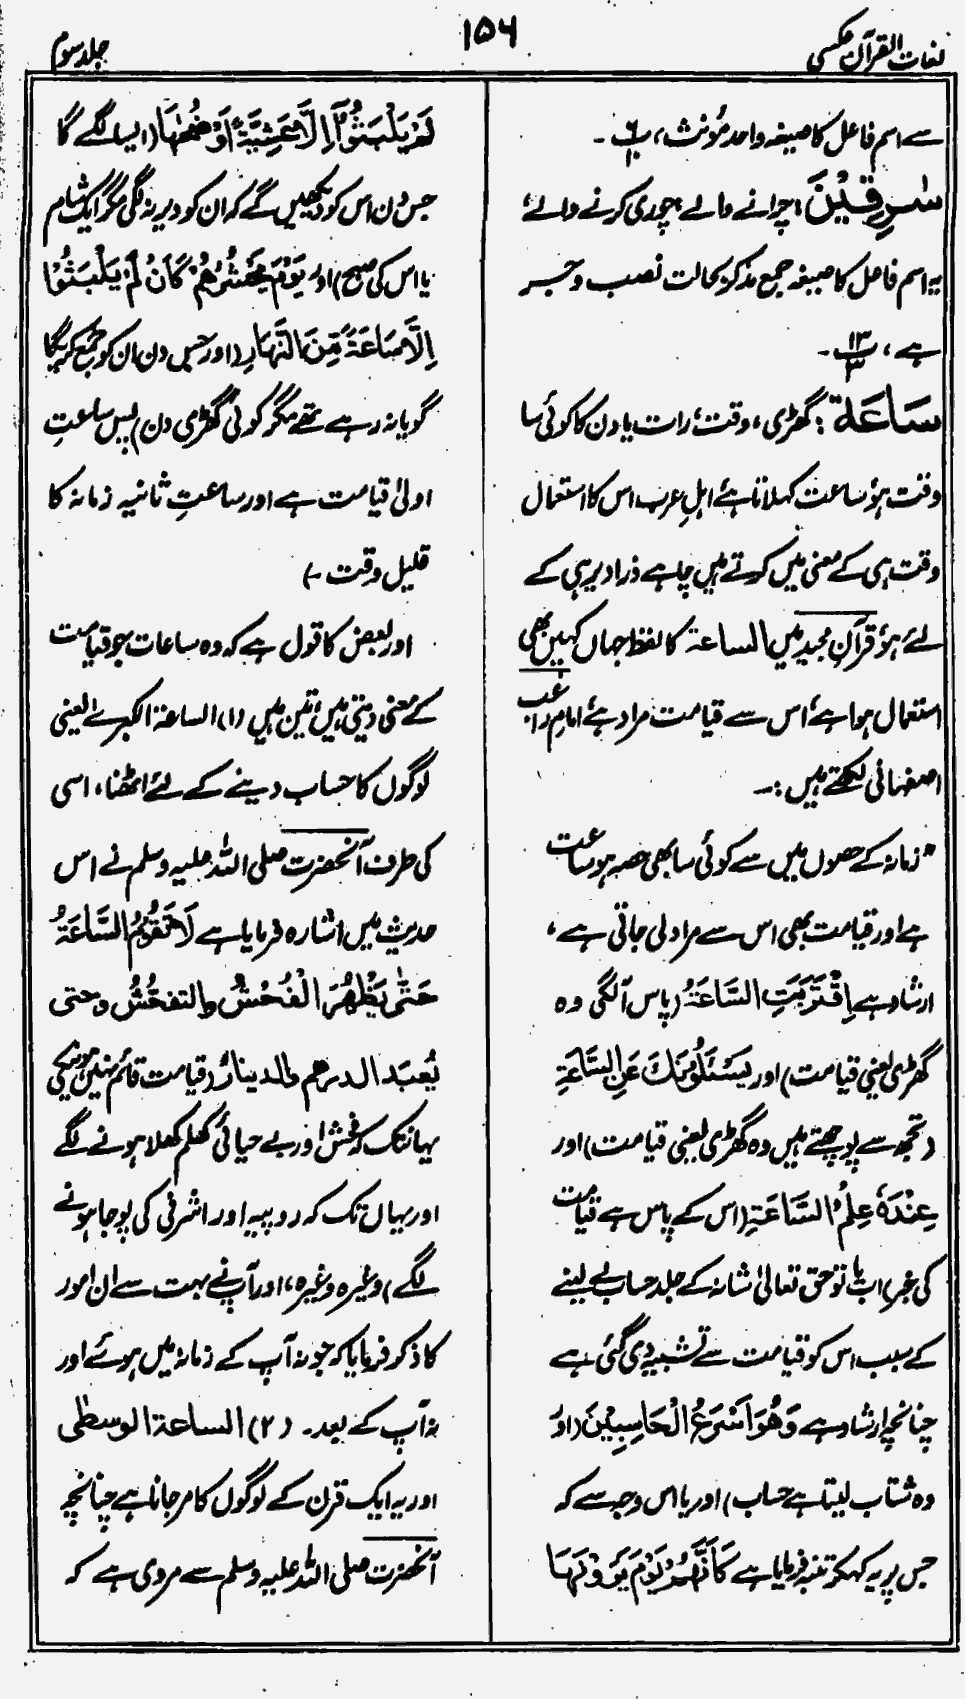 لغات القرآن عکسی
۱۵۶
جلد سوم
سے اسم فاعل کا صیغہ واحد مؤنث،
سٰرِقِیْنَ : چرانے والے، چوری کرنے والے،
یہ اسم فاعل کا صیغہ جمع مذکر بحالت نصب و جر
ہے، ۱۳ ۳ ۔
سَاعَة : گھڑی، وقت، رات یا دن کا کوئی سا
وقت ہو، ساعت کہلاتا ہے، اہلِ عرب اس کا استعمال
وقت ہی کے معنی میں کرتے ہیں چاہے ذرا دیر ہی کے
لئے ہو، قرآن مجید میں الساعة کا لفظ جہاں کہیں بھی
استعمال ہوا ہے، اس سے قیامت مراد ہے، امام راغب
اصفہانی لکھتے ہیں :۔
"زمانہ کے حصوں میں سے کوئی سا بھی حصہ ہو ساعت
ہے اور قیامت بھی اس سے مراد لی جاتی ہے،
ارشاد ہے اِقْتَرَبَتِ السَّاعَةُ (پاس آ لگی وہ
گھڑی یعنی قیامت) اور یَسْئَلُوْنَكَ عَنِ السَّاعَةِ
(تجھ سے پوچھتے ہیں وہ گھڑی یعنی قیامت) اور
عِنْدَهٗ عِلْمُ السَّاعَةِ (اس کے پاس ہے قیامت
کی خبر) اب یا تو حق تعالیٰ شانہ کے جلد حساب لے لینے
کے سبب اس کو قیامت سے تشبیہ دی گئی ہے
چنانچہ ارشاد ہے وَهُوَ اَسْرَعُ الْحَاسِبِیْنَ (اور
وہ شتاب لیتا ہے حساب) اور یا اس وجہ سے کہ
جس پر یہ کہکر تنبیہ فرمایا ہے كَاَنَّهُمْ یَوْمَ یَرَوْنَهَا
لَمْ یَلْبَثُوْٓا اِلَّا عَشِیَّةً اَوْ ضُحٰهَا (ایسا لگے گا
جس دن اس کو دیکھیں گے کہ ان کو دیر نہ لگی مگر ایک شام
یا اس کی صبح) اور یَوْمَ یَحْشُرُهُمْ كَاَنْ لَمْ یَلْبَثُوْا
اِلَّا سَاعَةً مِّنَ النَّهَارِ (اور جس دن ان کو جمع کریگا
گویا نہ رہے تھے مگر کوئی گھڑی دن) پس ساعتِ
اولیٰ قیامت ہے اور ساعتِ ثانیہ زمانہ کا
قلیل وقت ۔)
اور بعض کا قول ہے کہ وہ ساعات جو قیامت
کے معنی دیتی ہیں، تین ہیں (۱) الساعة الکبرےٰ یعنی
لوگوں کا حساب دینے کے لئے اٹھنا، اسی
کی طرف آنحضرت صلی اللہ علیہ وسلم نے اس
حدیث میں اشارہ فرمایا ہے لَا تَقُوْمُ السَّاعَةُ
حَتّٰی یَظْهَرَ الْفُحْشُ والتفحُّشُ وحتی
یُعبَدَ الدرهم والدینارُ (قیامت قائم نہیں ہوسکیگی
یہانتک کہ فحش اور بے حیائی کھلم کھلا ہونے لگے
اور یہاں تک کہ روپیہ اور اشرفی کی پوجا ہونے
لگے) وغیرہ وغیرہ، اور آپ نے بہت سے ان امور
کا ذکر فرمایا کہ جو نہ آپ کے زمانہ میں ہوئے اور
نہ آپ کے بعد۔ (۲) الساعة الوسطٰی
اور یہ ایک قرن کے لوگوں کا مرجانا ہے چنانچہ
آنحضرت صلی اللہ علیہ وسلم سے مروی ہے کہ